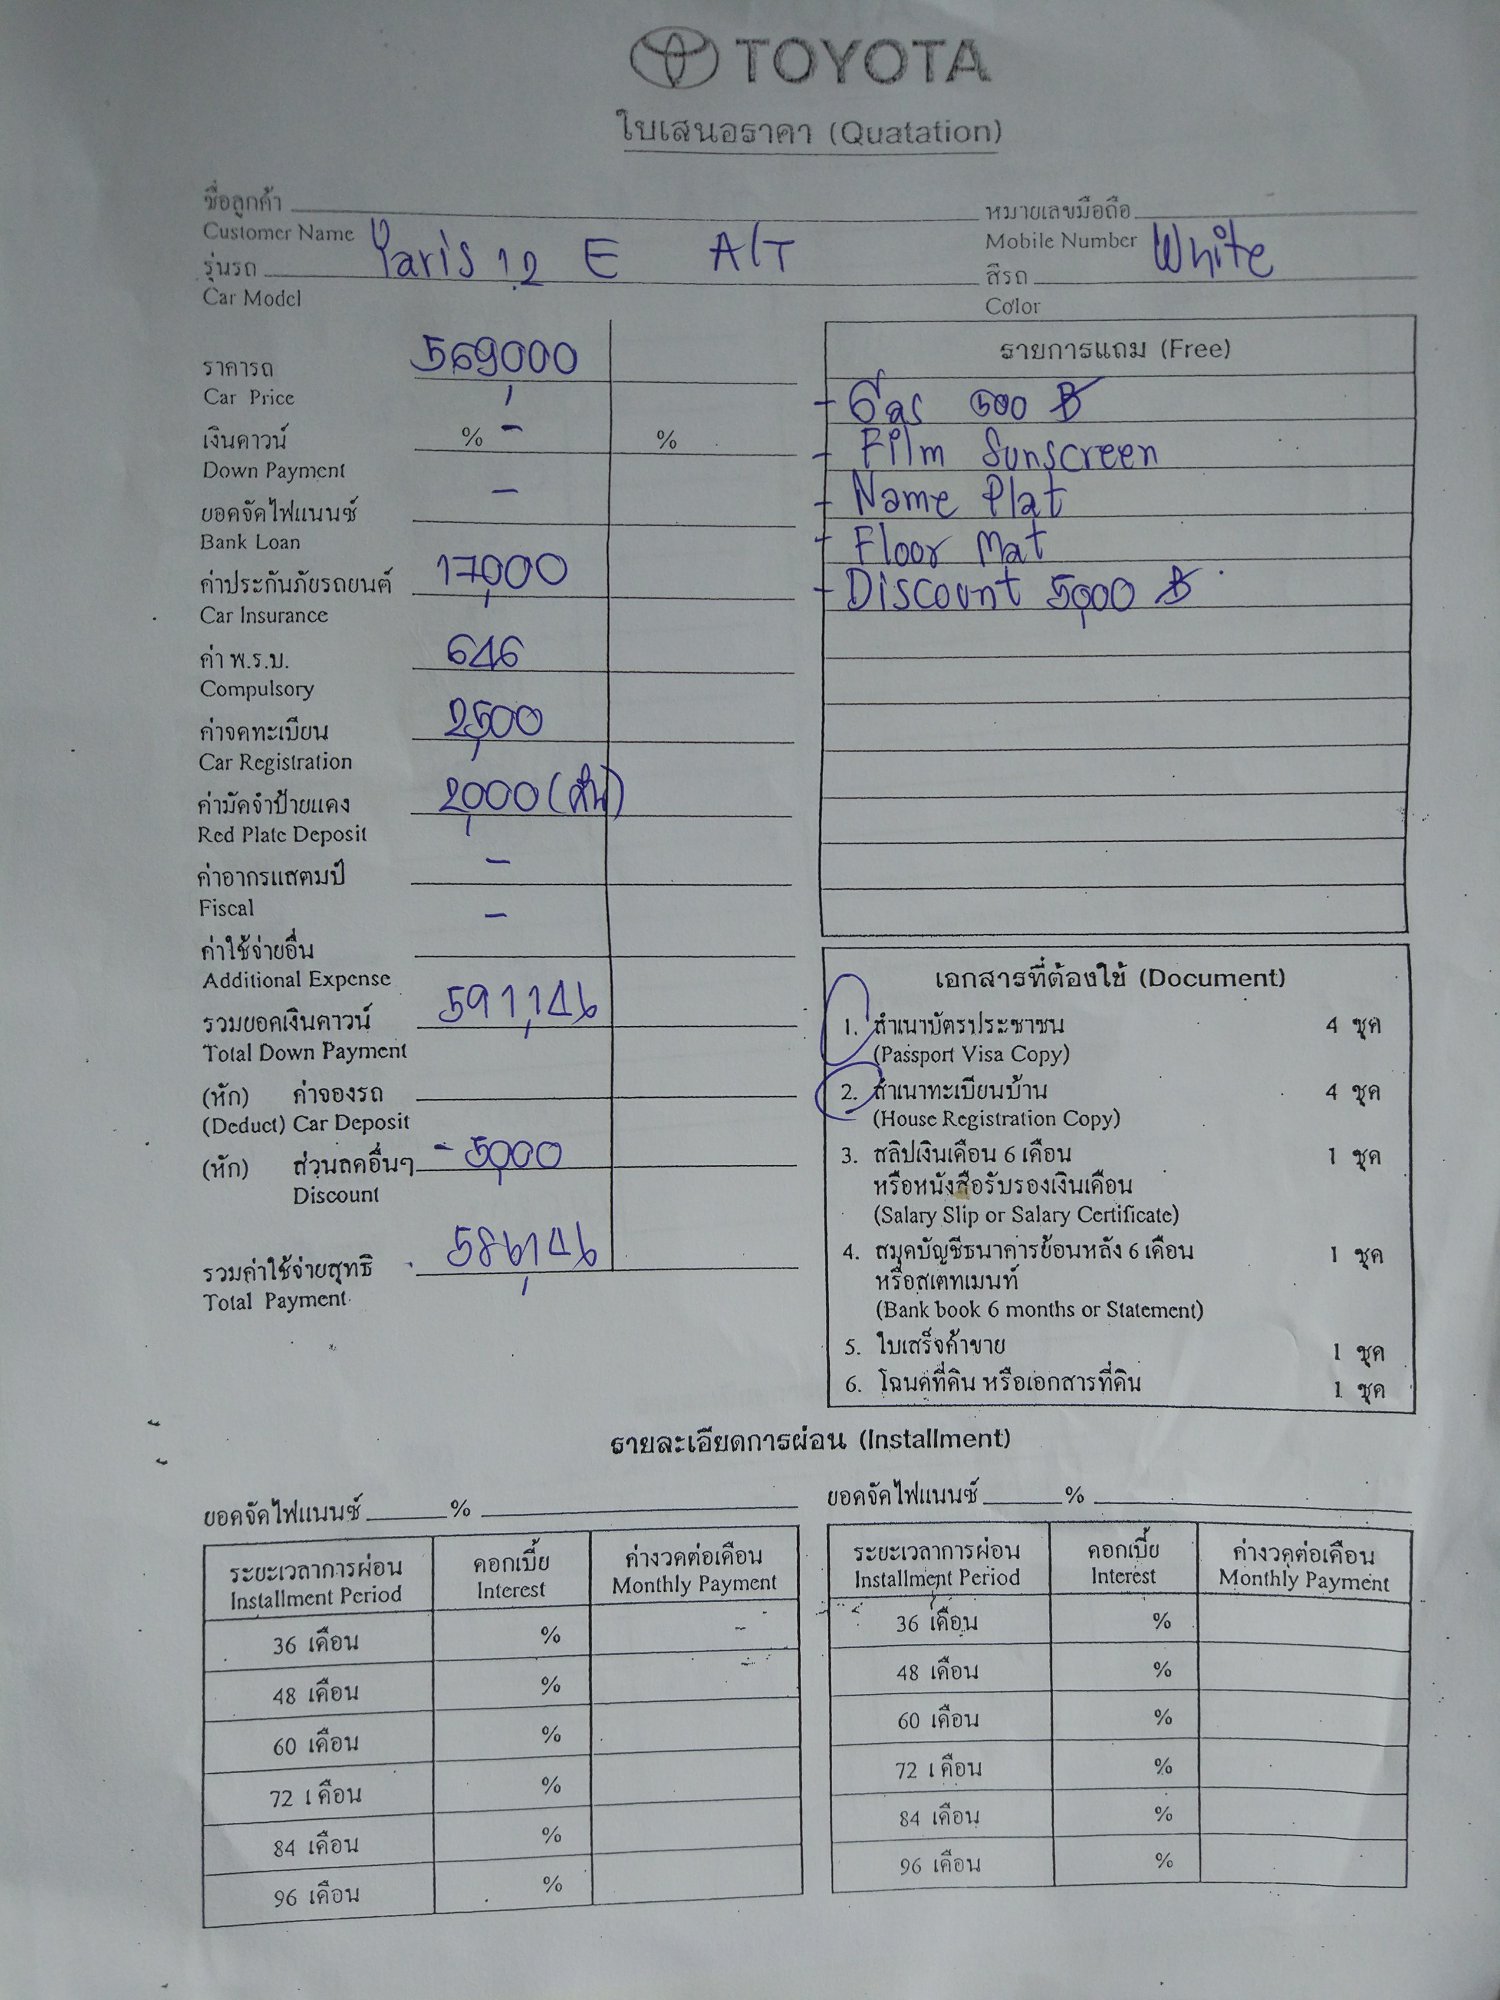 TOYOTA
ใบเสนอราคา (Quatation)
ชื่อลูกค้า
Customer Name
หมายเลขมือถือ
Mobile Number
รุ่นรถ Yaris 1.2 E A/T
Car Model
สีรถ White
Color
ราคารถ 569,000
Car Price
เงินดาวน์ % - %
Down Payment
ยอดจัดไฟแนนซ์ -
Bank Loan
ค่าประกันภัยรถยนต์ 17,000
Car Insurance
ค่า พ.ร.บ. 646
Compulsory
ค่าจดทะเบียน 2,500
Car Registration
ค่ามัดจำป้ายแดง 2,000 (คืน)
Red Plate Deposit
ค่าอากรแสตมป์ -
Fiscal
ค่าใช้จ่ายอื่น -
Additional Expense
รวมยอดเงินดาวน์ 591,146
Total Down Payment
(หัก) ค่าจองรถ
(Deduct) Car Deposit
(หัก) ส่วนลดอื่นๆ - 5,000
Discount
รวมค่าใช้จ่ายสุทธิ 586,146
Total Payment
รายการแถม (Free)
- Gas 500 ฿
- Film Sunscreen
- Name Plat
- Floor Mat
- Discount 5,000 ฿
เอกสารที่ต้องใช้ (Document)
1. สำเนาบัตรประชาชน 4 ชุด
(Passport Visa Copy)
2. สำเนาทะเบียนบ้าน 4 ชุด
(House Registration Copy)
3. สลิปเงินเดือน 6 เดือน 1 ชุด
หรือหนังสือรับรองเงินเดือน
(Salary Slip or Salary Certificate)
4. สมุดบัญชีธนาคารย้อนหลัง 6 เดือน 1 ชุด
หรือสเตทเมนท์
(Bank book 6 months or Statement)
5. ใบเสร็จค้าขาย 1 ชุด
6. โฉนดที่ดิน หรือเอกสารที่ดิน 1 ชุด
รายละเอียดการผ่อน (Installment)
ยอดจัดไฟแนนซ์ %
ระยะเวลาการผ่อน ดอกเบี้ย ค่างวดต่อเดือน
Installment Period Interest Monthly Payment
36 เดือน %
48 เดือน %
60 เดือน %
72 เดือน %
84 เดือน %
96 เดือน %
ยอดจัดไฟแนนซ์ %
ระยะเวลาการผ่อน ดอกเบี้ย ค่างวดต่อเดือน
Installment Period Interest Monthly Payment
36 เดือน %
48 เดือน %
60 เดือน %
72 เดือน %
84 เดือน %
96 เดือน %